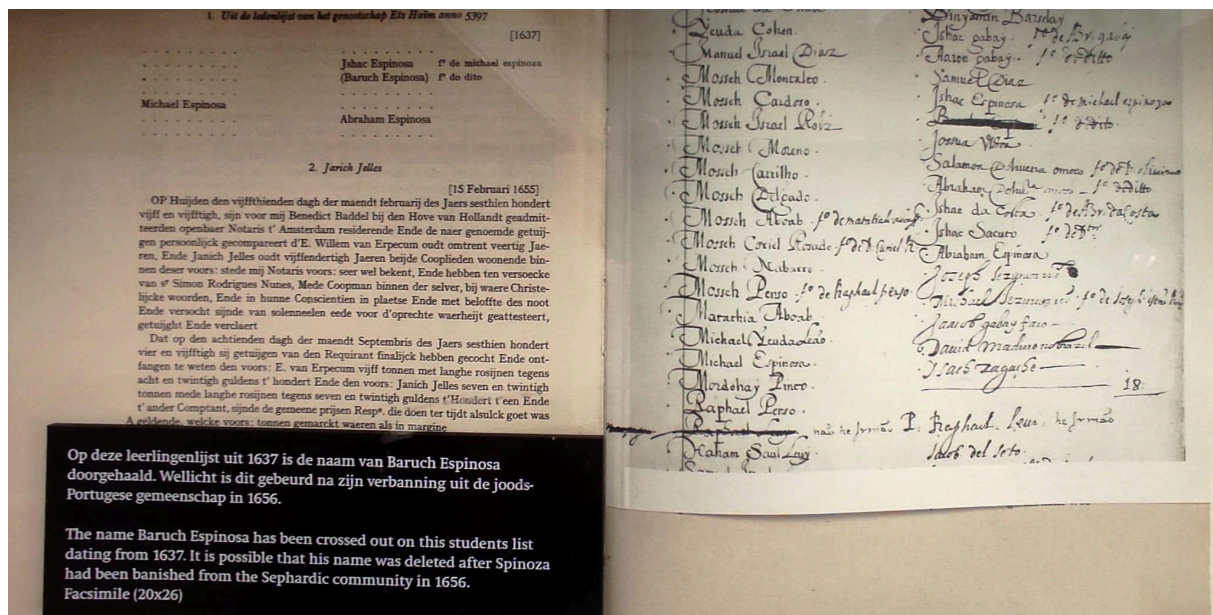 1. Uit de ledenlijst van het genootschap Ets Haïm anno 5397
[1637]
Jshac Espinosa fº de michael espinosa
(Baruch Espinosa) fº do dito
Michael Espinosa
Abraham Espinosa
2. Jarich Jelles
[15 Februari 1655]
OP Huijden den vijffthienden dagh der maendt februarij des Jaers sesthien hondert
vijff en vijfftigh, sijn voor mij Benedict Baddel bij den Hove van Hollandt geadmit-
teerden openbaer Notaris t' Amsterdam residerende Ende de naer genoemde getuij-
gen persoonlijck gecompareert d'E. Willem van Erpecum oudt omtrent veertig Jae-
ren, Ende Janich Jelles oudt vijffendertigh Jaeren beijde Cooplieden woonende bin-
nen deser voors: stede mij Notaris voors: seer wel bekent, Ende hebben ten versoecke
van sʳ Simon Rodrigues Nunes, Mede Coopman binnen der selver, bij waere Christe-
lijcke woorden, Ende in hunne Conscientien in plaetse Ende met beloffte des noot
Ende versocht sijnde van solenneelen eede voor d'oprechte waerheijt geattesteert,
getuijght Ende verclaert
Dat op den achtienden dagh der maendt Septembris des Jaers sesthien hondert
vier en vijfftigh sij getuijgen van den Requirant finalijck hebben gecocht Ende ont-
fangen te weten den voors: E. van Erpecum vijff tonnen met langhe rosijnen tegens
acht en twintigh guldens t' hondert Ende den voors: Janich Jelles seven en twintigh
tonnen mede langhe rosijnen tegens seven en twintigh guldens t'Hondert t'een Ende
t' ander Comptant, sijnde de gemeene prijsen Respᵉ. die doen ter tijdt alsulck goet was
geldende, welcke voors: tonnen gemarckt waeren als in margine
Op deze leerlingenlijst uit 1637 is de naam van Baruch Espinosa
doorgehaald. Wellicht is dit gebeurd na zijn verbanning uit de joods-
Portugese gemeenschap in 1656.
The name Baruch Espinosa has been crossed out on this students list
dating from 1637. It is possible that his name was deleted after Spinoza
had been banished from the Sephardic community in 1656.
Facsimile (20x26)
Yeuda Cohen.
Manuel Israel Diaz
Mosseh Montalto.
Mosseh Cardozo.
Mosseh Israel Roiz
Mosseh Moreno.
Mosseh Carrilho.
Mosseh Delgado.
Mosseh Aboab.
Mosseh Coriel Rosado.
Mosseh Nabarro.
Mosseh Penso. fº de Raphael penso
Matathia Aboab.
Michael Yeuda Leão.
Michael Espinosa.
Mordohay Pinto.
Raphael Penso.
não he Irmão
Natham Saul Levy
Binyamin Barselay
Ishac gabay.
Aaron gabay. fº de ditto
Samuel Diaz
Ishac Espinosa fº de michael espinosa
fº de dito.
Josua
Salamon
Abraham
Ishac da Costa fº de Abr. da Costa
Ishac Sacuto
Abraham Espinosa
Jaacob gabay faro
David
18.
Raphael Levi. he Irmão
Jacob del Soto.